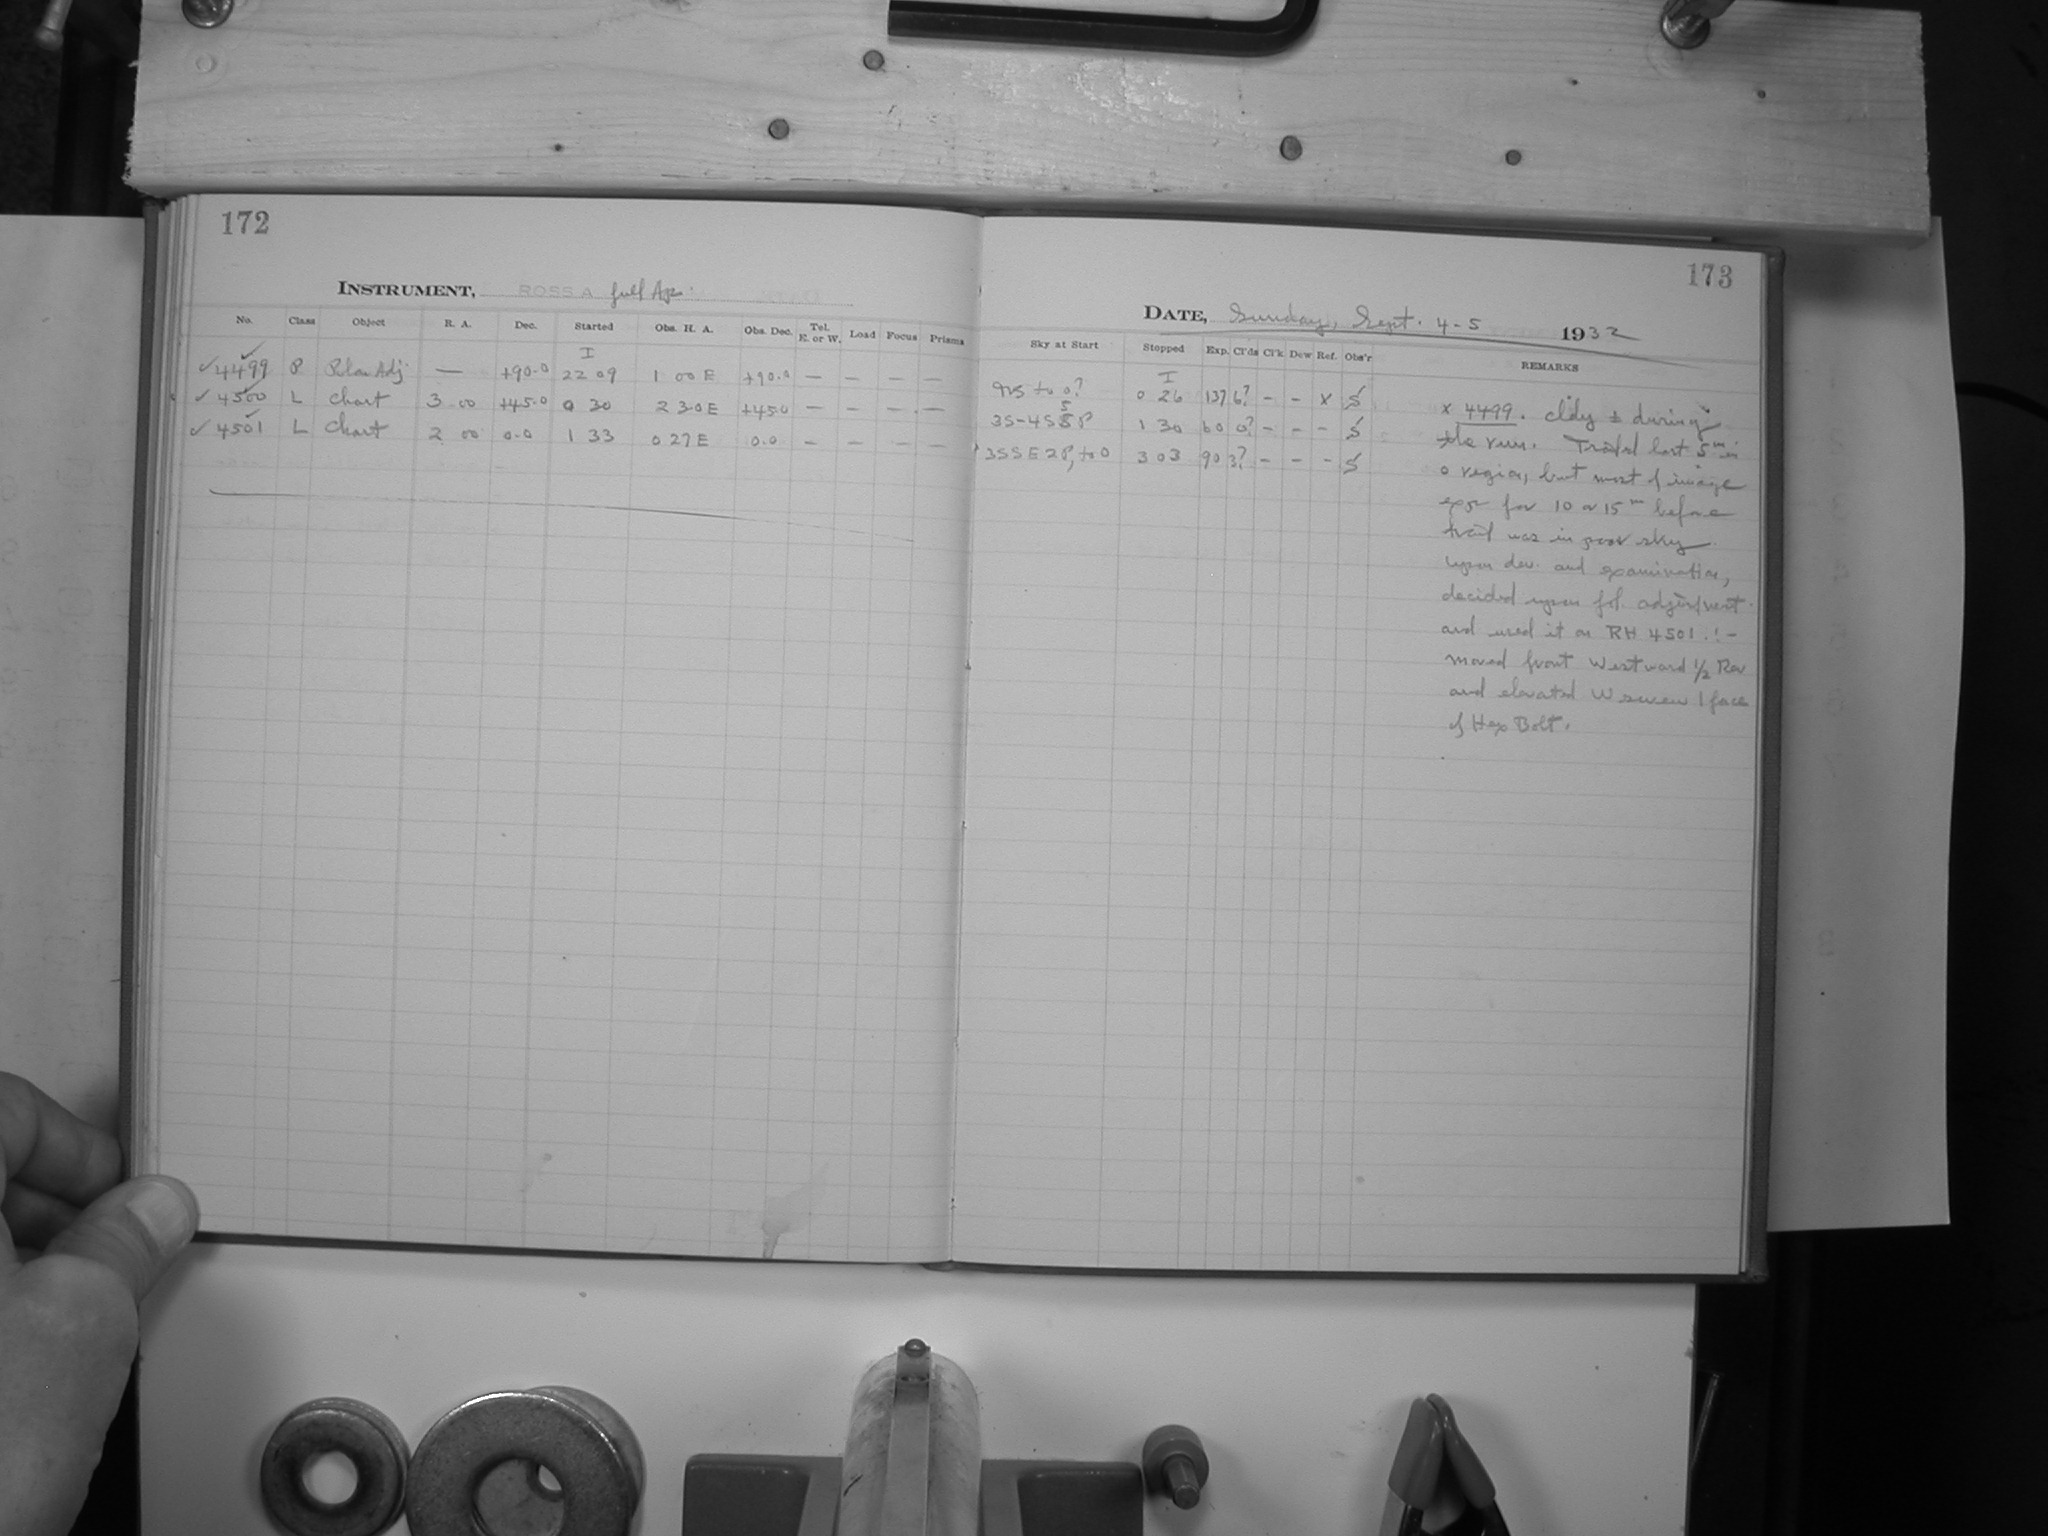 172
INSTRUMENT, ROSS A full Ap.
No. Class Object R. A. Dec. Started Obs. H. A. Obs. Dec. Tel. E. or W. Load Focus Prisms
I
✓ 4499 P Polar Adj. — +90.0 22 09 1 00 E +90.0 — — — —
✓ 4500 L Chart 3 00 +45.0 0 30 2 30 E +45.0 — — — —
✓ 4501 L Chart 2 00 0.0 1 33 0 27 E 0.0 — — — —
173
DATE, Sunday, Sept. 4-5 1932
Sky at Start Stopped Exp. Cl'ds Cl'k Dew Ref. Obs'r REMARKS
I
to 0? 0 26 137 6? - - x S
3S-4S P 1 30 60 0? - - - S
3SSE2P, to 0 3 03 90 3? - - - S
x 4499. cldy ± during
the run. Trailed last 5m in
0 region, but most of image
expr for 10 or 15m before
trail was in poor sky.
Upon dev. and examination,
decided upon fol. adjustment
and used it on RH 4501.:-
moved front Westward 1/2 Rev
and elevated W screw 1 face
of Hex Bolt.